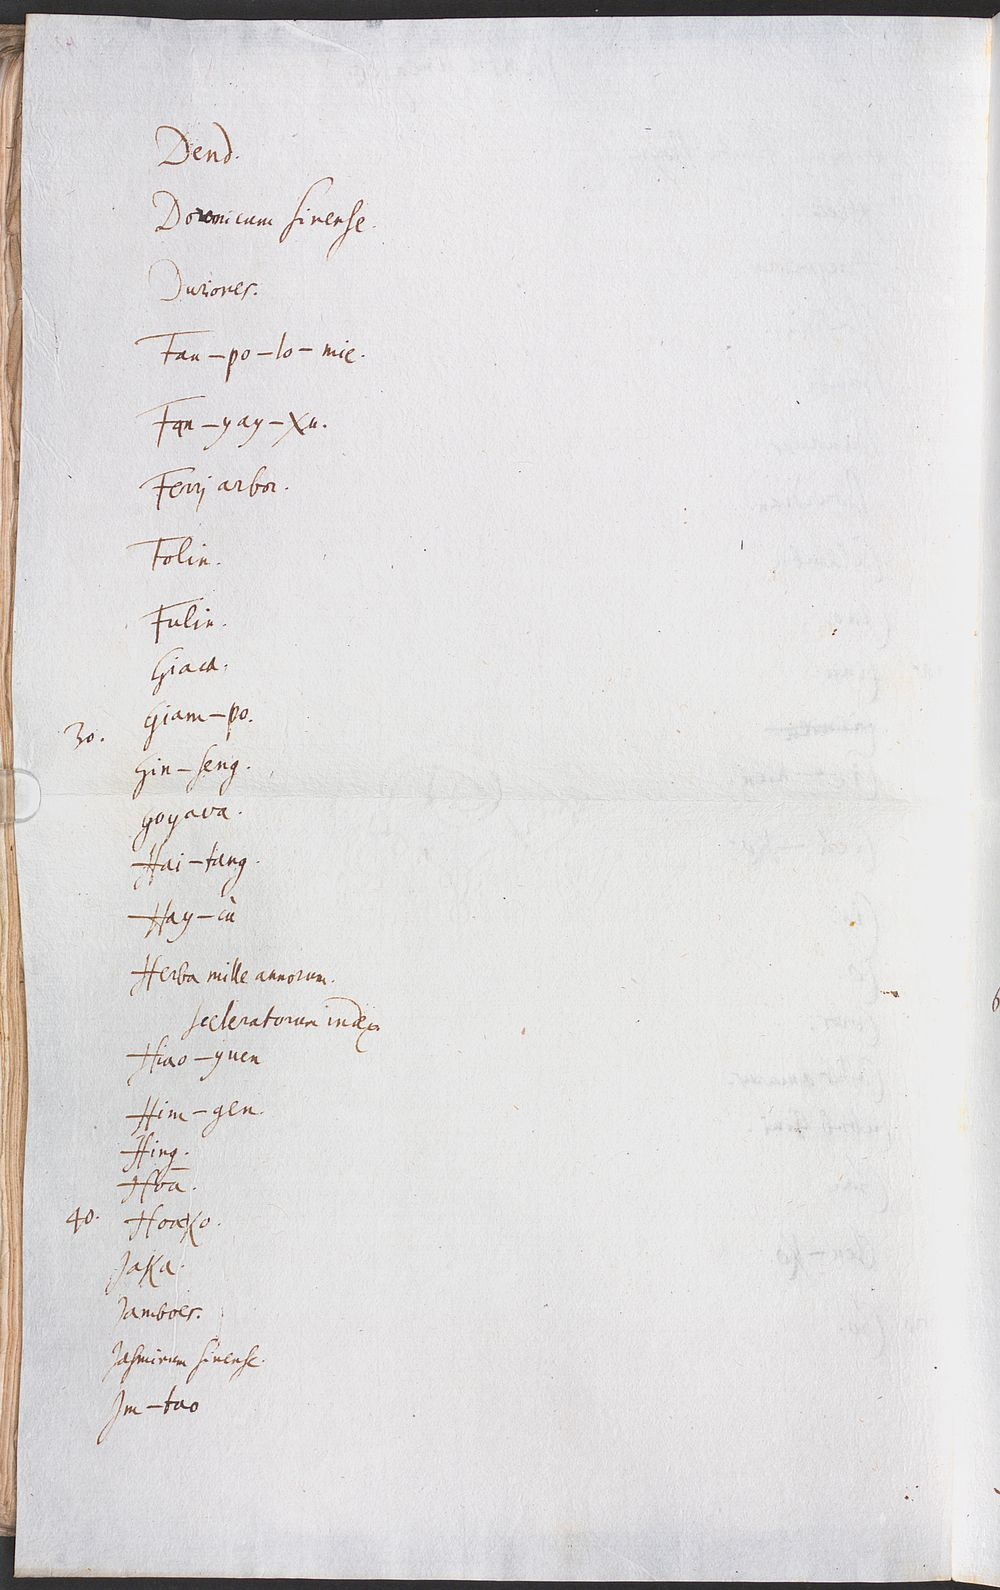 Dend.
Doronicum sinense.
Duriones.
Fan-po-lo-mie.
Fan-yay-xu.
Ferrj arbor.
Folin.
Fulin.
Giaca.
Giam-po.
30.
Gin-seng.
Goyava.
Hai-tang.
Hay-cù
Herba mille annorum.
sceleratorum index
Hiao-yuen
Him-gen.
Hing.
Hoā.
40. Hoaxo.
JaKa.
Jamboes.
Jasminum sinense.
Jm-tao